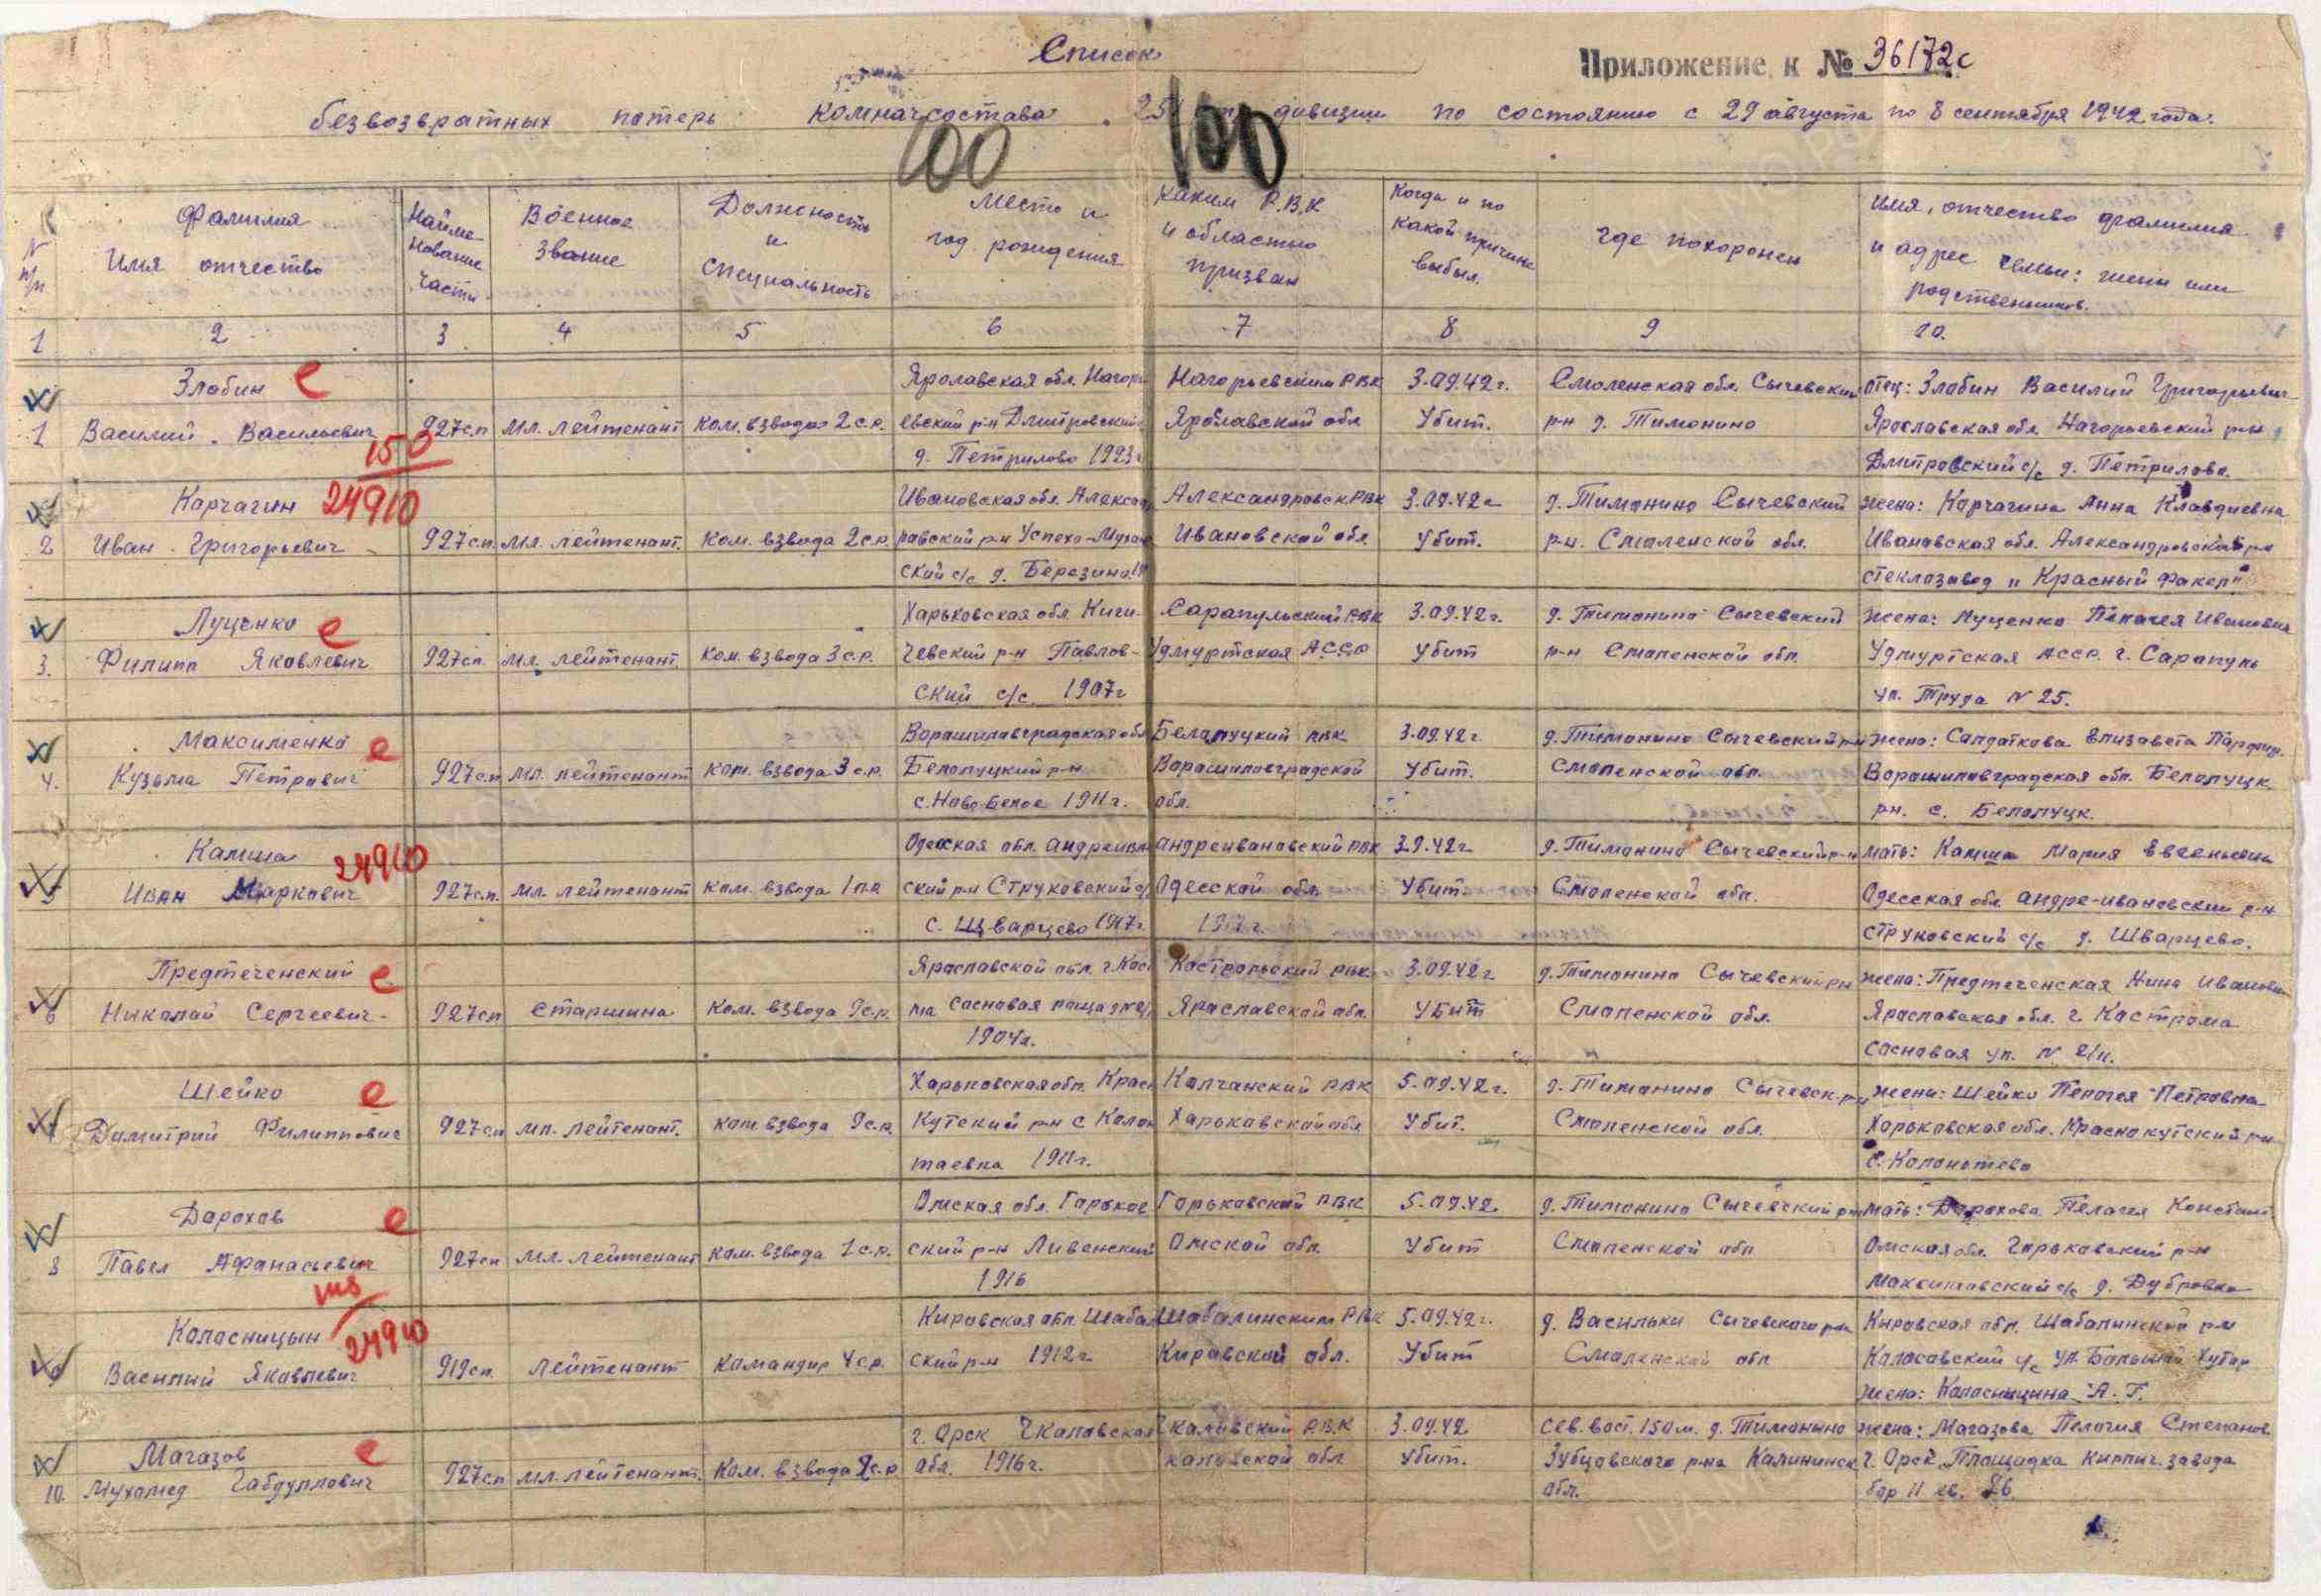 Список
Приложение к № 36172с
безвозвратных потерь комначсостава дивизии по состоянию с 29 августа по 8 сентября 1942 года.
100 100
N п/п
Фамилия
Имя отчество
Наиме-
нование
части
Военное
звание
Должность
и
специальность
Место и
год рождения
Каким Р.В.К
и областью
призван
Когда и по
какой причине
выбыл.
Где похоронен
Имя, отчество фамилия
и адрес семьи: жены или
родственников.
1 2 3 4 5 6 7 8 9 10.
1
Злобин
Василий Васильевич
927сп
мл. лейтенант
ком. взвода 2 с.р.
Ярославская обл. Нагорь
евский р-н Дмитровский
д. Петрилово 1923г
Нагорьевским РВК
Ярославской обл
3.09.42г.
Убит.
Смоленская обл. Сычевский
р-н д. Тимонино
отец: Злобин Василий Григорьевич
Ярославская обл. Нагорьевский р-н
Дмитровский с/с д. Петрилово.
150
24910
2
Корчагин
Иван Григорьевич
927сп.
мл. лейтенант.
ком. взвода 2 с.р.
Ивановская обл. Александ
ровский р-н Успено-
ский с/с д. Березина
Александровск РВК
Ивановской обл
3.09.42г
Убит.
д. Тимонино Сычевский
р-н. Смоленской обл.
жена: Корчагина Анна Клавдиевна
Ивановская обл. Александровский р-н
стеклозавод "Красный Факел"
3.
Луценко
Филипп Яковлевич
927сп.
мл. лейтенант
ком. взвода 3 с.р.
Харьковская обл. Киги-
чевский р-н Павлов-
ский с/с. 1907г
Сарапульский РВК
Удмуртская АССР
3.09.42г.
Убит
д. Тимонино Сычевский
р-н Смоленской обл.
жена: Луценко Пелагея Ивановна
Удмуртская АССР. г. Сарапуль
ул. Труда N 25.
4.
Максименко
Кузьма Петрович
927сп
мл. лейтенант
ком. взвода 3 с.р.
Ворошиловградская обл
Белолуцкий р-н
с. Ново-Белое 1911г.
Белолуцкий РВК
Ворошиловградской
обл.
3.09.42г
Убит.
д. Тимонино Сычевский р-н
Смоленской обл.
жена: Солдаткова Елизавета Парфир.
Ворошиловградская обл. Белолуцк.
рн. с. Белолуцк.
5
Камша
Иван Маркович
24910
927сп.
мл. лейтенант
ком. взвода 1 п.р
Одесская обл. Андреивано
ский р-н Струковский с/
с. Щварцево 1917г.
Андреивановский РВК
Одесской обл.
1917г.
3.9.42г
Убит.
д. Тимонино Сычевский р-н
Смоленской обл.
мать: Камша Мария Евгеньевна
Одесская обл. Андре-Ивановский р-н
Струковский с/с д. Шварцево.
6
Предтеченский
Николай Сергеевич
927сп
старшина
ком. взвода 9 с.р.
Ярославской обл. г. Кост
ма Сосновая роща
1904г.
Костромьский РВК
Ярославской обл.
3.09.42г
Убит
д. Тимонино Сычевский рн
Смоленской обл.
жена: Предтеченская Нина Ивановн
Ярославская обл. г. Кострома
Сосновая ул. N 2/11.
7
Шейко
Димитрий Филиппович
927сп
мл. лейтенант.
ком. взвода 9 с.р.
Харьковская обл. Красн
Кутский р-н с Колон
таевка 1911г.
Колчанский РВК
Харьковской обл
5.09.42г.
Убит.
д. Тимонино Сычевск. р-н
Смоленской обл.
жена: Шейко Пелагея Петровна
Харьковская обл. Краснокутский р-н
с. Колонотево
8
Дорохов
Павел Афанасьевич
927сп
мл. лейтенант
ком. взвода 1 с.р.
Омская обл. Горьков
ский р-н Ливенский
1916
Горьковский РВК
Омской обл.
5.09.42.
Убит
д. Тимонино Сычевский рн
Смоленской обл
мать: Дорохова Пелагея Констант
Омская обл. Горьковский р-н
Максимовский с/с д. Дубровка
9
Колосницын
Василий Яковлевич
24910
919сп.
лейтенант
командир 4 с.р.
Кировская обл. Шабал
ский р-н 1912г
Шабалинским РВК
Кировской обл.
5.09.42г.
Убит
д. Васильки Сычевского рн
Смоленской обл
Кировская обл. Шабалинский р-н
Колосовский с/с ул. Большой Хутор
жена: Колосницына А. Г.
10.
Магазов
Мухамед Габдуллович
927сп
мл. лейтенант.
ком. взвода 2 с.р
г. Орск Чкаловская
обл. 1916г.
Чкаловский РВК
каловской обл.
3.09.42
Убит.
Сев. вост. 150м. д. Тимонино
Зубцовского р-на Калининск
обл.
жена: Магазова Пелагия Степанов.
г. Орск Площадка Кирпич. завода
бар 11 кв. 26.